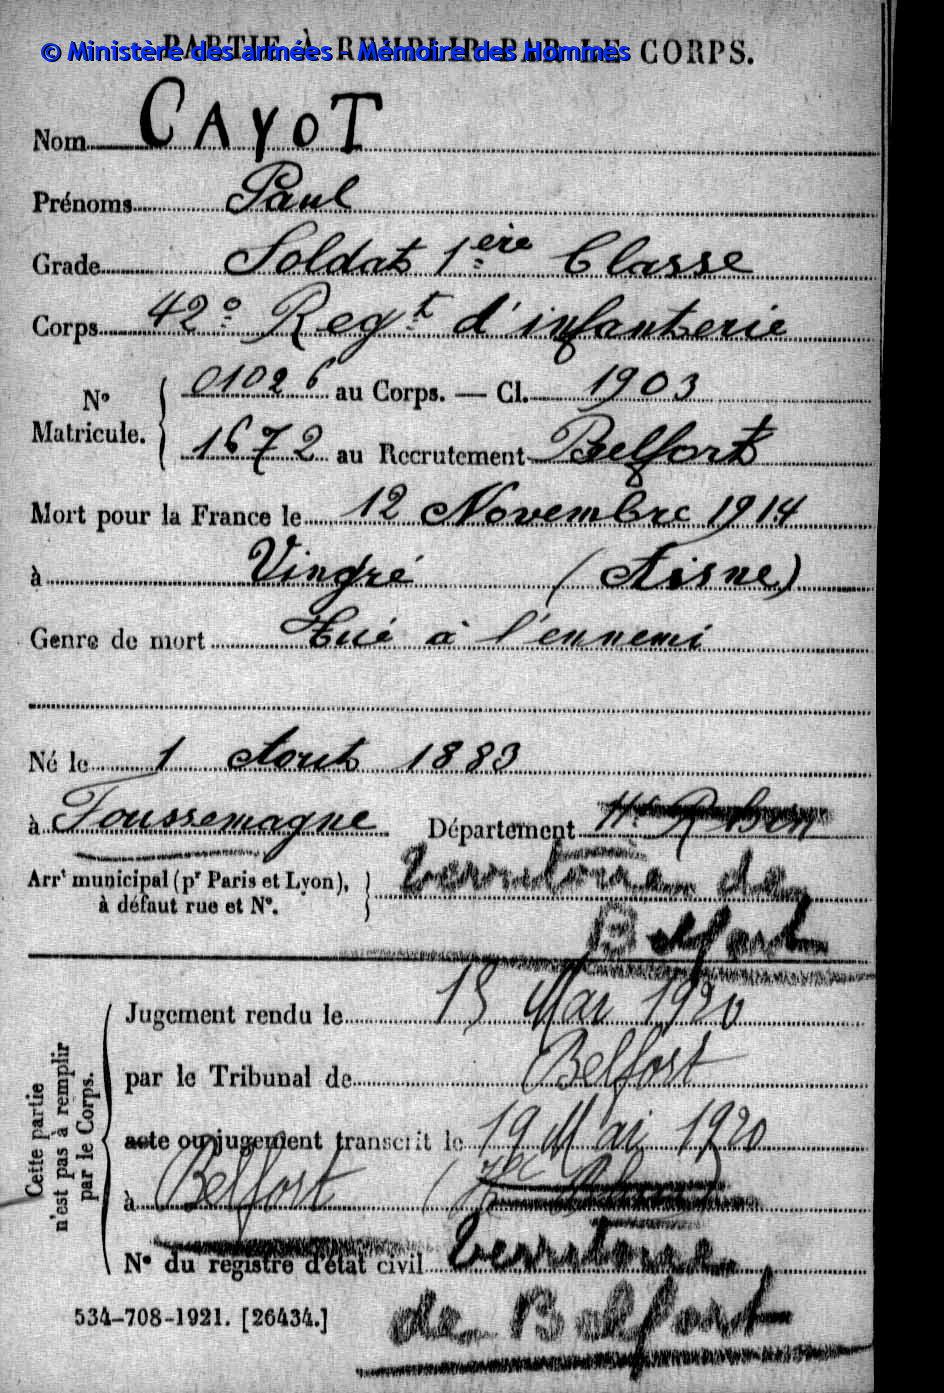 PARTIE À REMPLIR PAR LE CORPS.
© Ministère des armées - Mémoire des Hommes
Nom CAYOT
Prénoms Paul
Grade Soldat 1ère Classe
Corps 42e Regt d'infanterie
No Matricule. { 01026 au Corps. — Cl. 1903
1672 au Recrutement Belfort
Mort pour la France le 12 Novembre 1914
à Vingré (Aisne)
Genre de mort Tué à l'ennemi
Né le 1 Aout 1883
à Foussemagne Département Ht Rhin
Arrt municipal (pr Paris et Lyon), } Territoire de
à défaut rue et No. Belfort
Cette partie n'est pas à remplir par le Corps.
Jugement rendu le 15 Mai 1920
par le Tribunal de Belfort
acte ou jugement transcrit le 19 Mai 1920
à Belfort
No du registre d'état civil Territoire
534-708-1921. [26434.] de Belfort